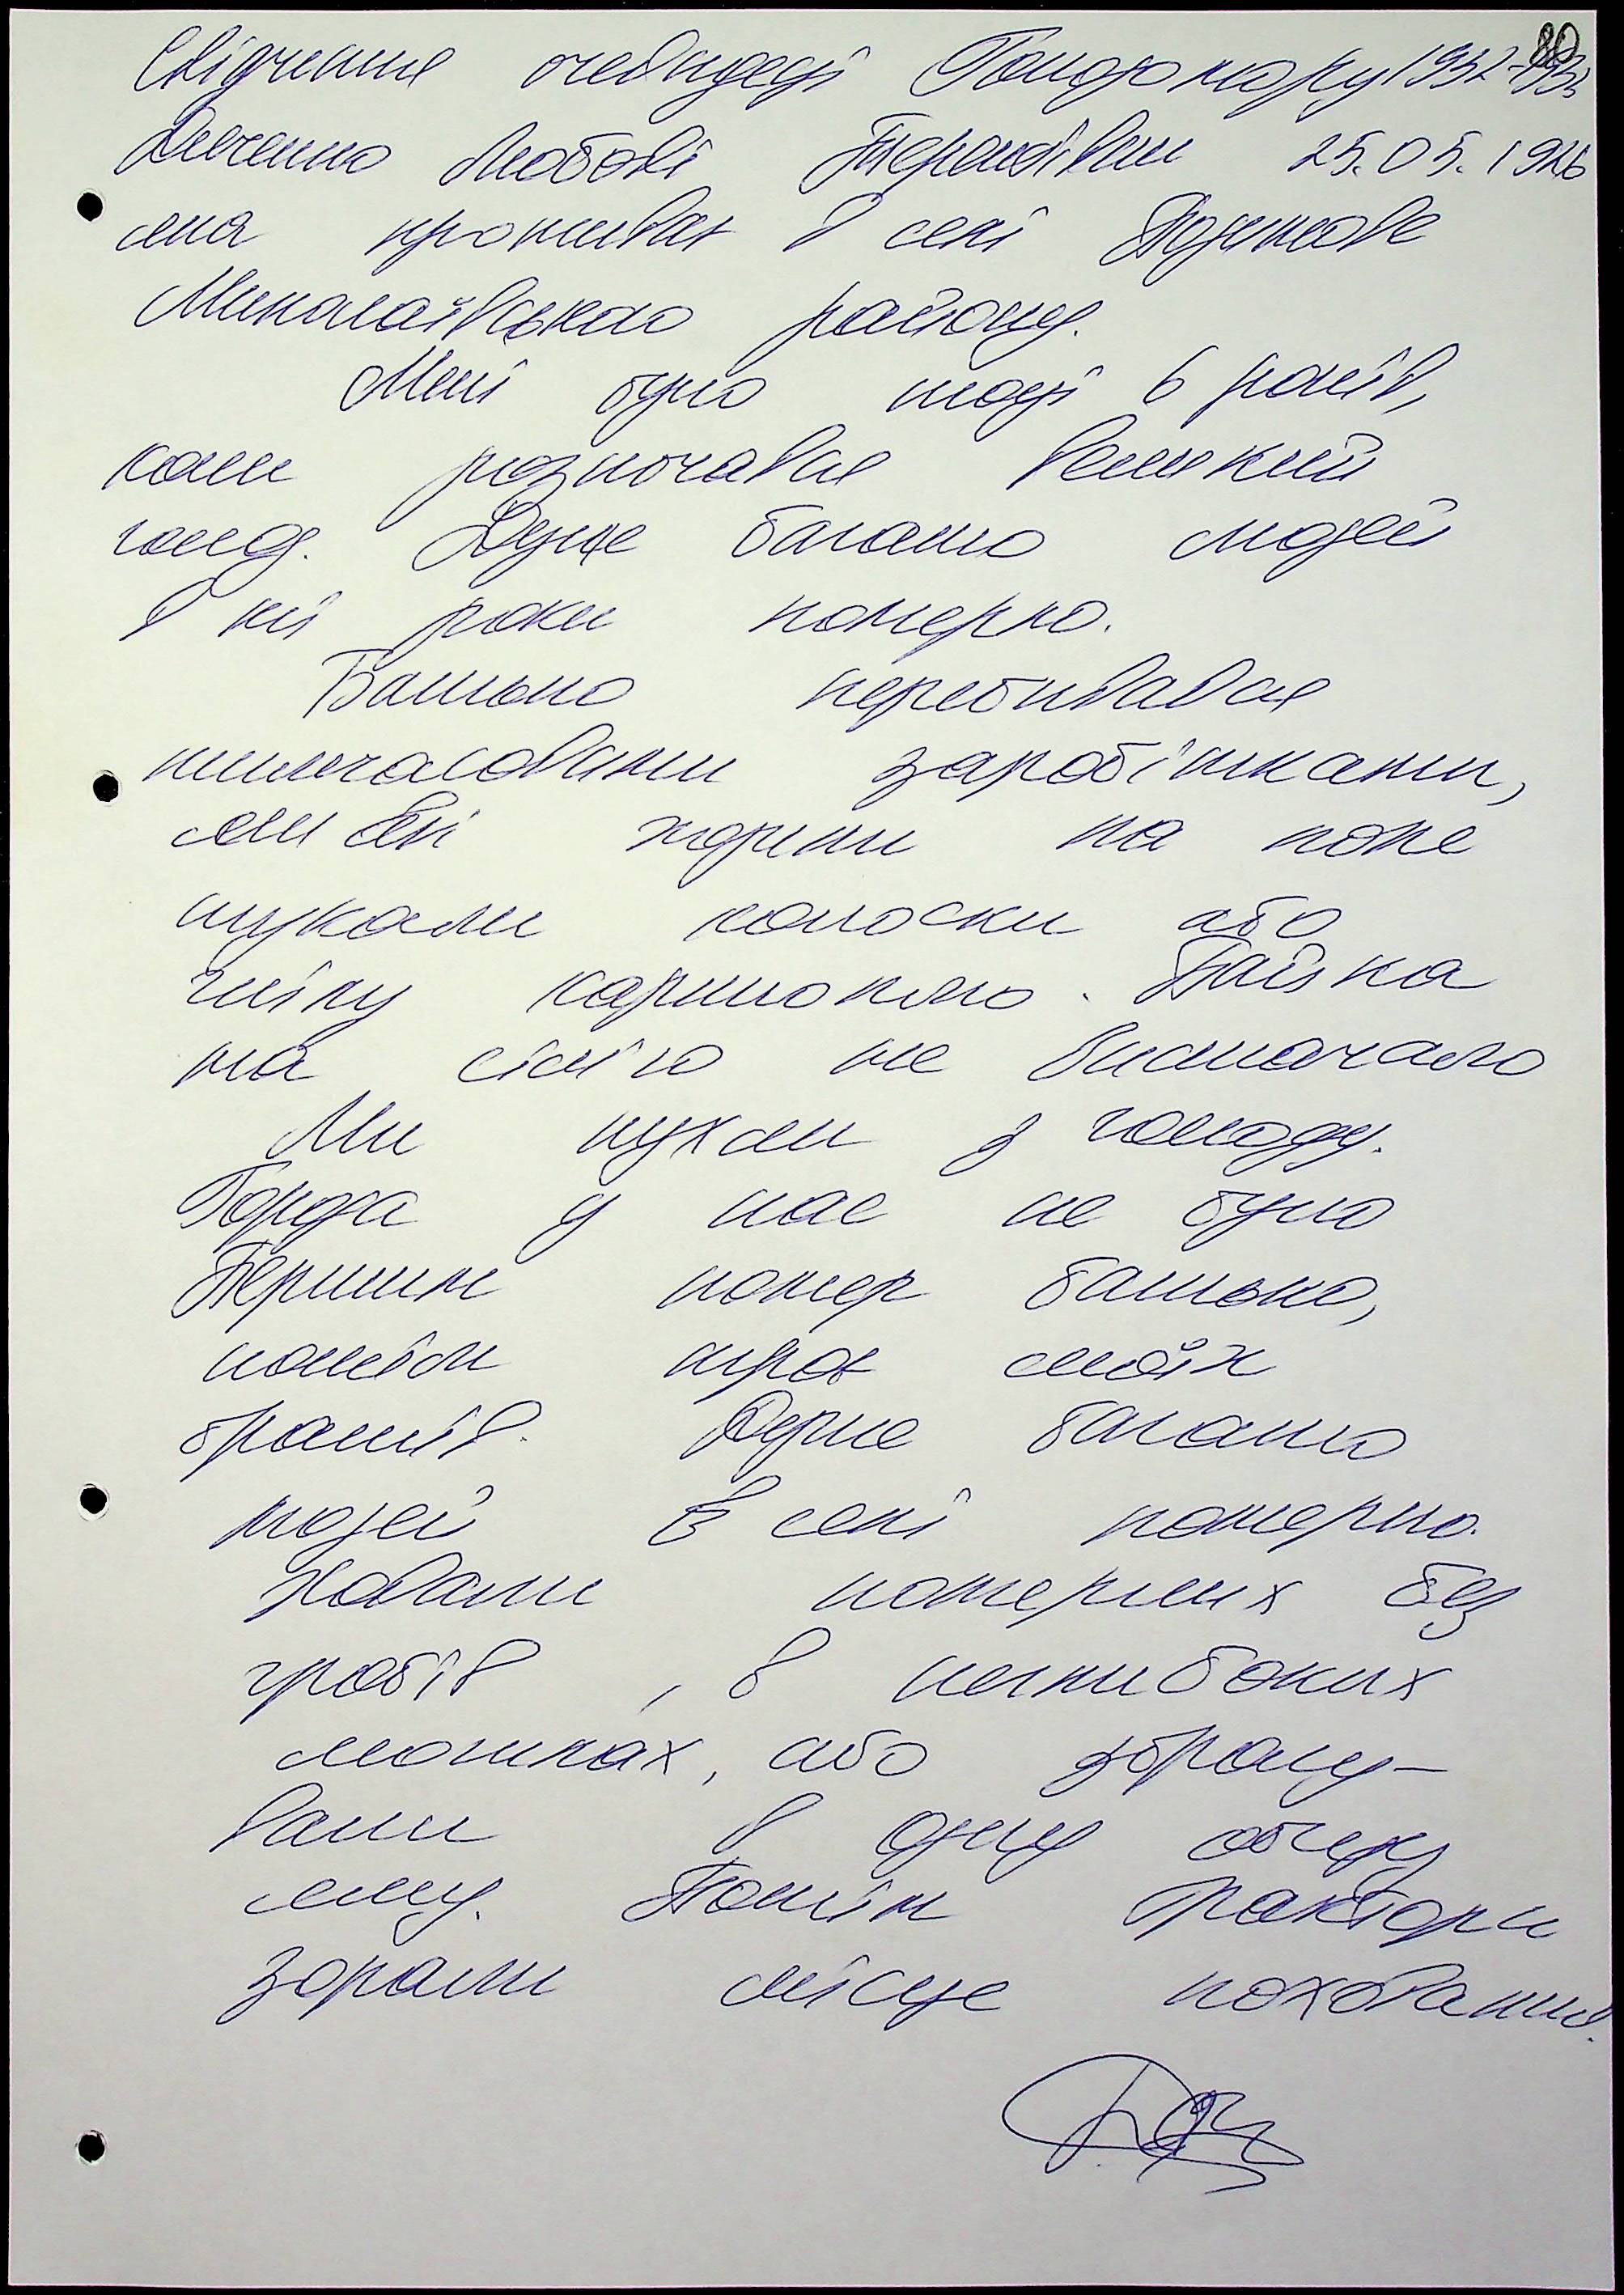 80
Свідчення очевидеці Голодомору 1932-1933
Левченко Любові 25.05.1926
яка проживає в селі
Миколаївського району.
Мені було тоді 6 років,
коли розпочався великий
голод. Дуже багато людей
в ті роки померло.
Батько перебивався
тимчасовими заробітками,
ми всі ходили на поле
шукали колоски або
гнілу картоплю. Пайка
на сім'ю не вистачало
Ми пухли з голоду.
Города у нас не було
Першим помер батько,
потім троє моїх
братів. Дуже багато
людей в селі померло.
Ховали померших без
гробів, в неглибоких
могилах, або зброшу-
вали в одну общу
яму. Потім трактори
зорали місце поховання.